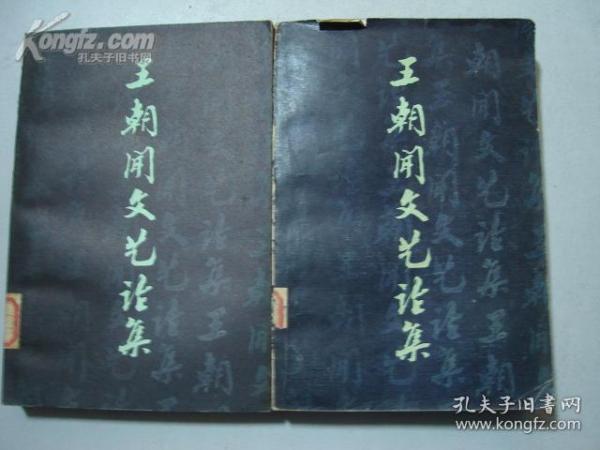 Kongfz.com
孔夫子旧书网
王朝闻文艺论集
王朝闻文艺论集
孔夫子旧書网
www.kongfz.com